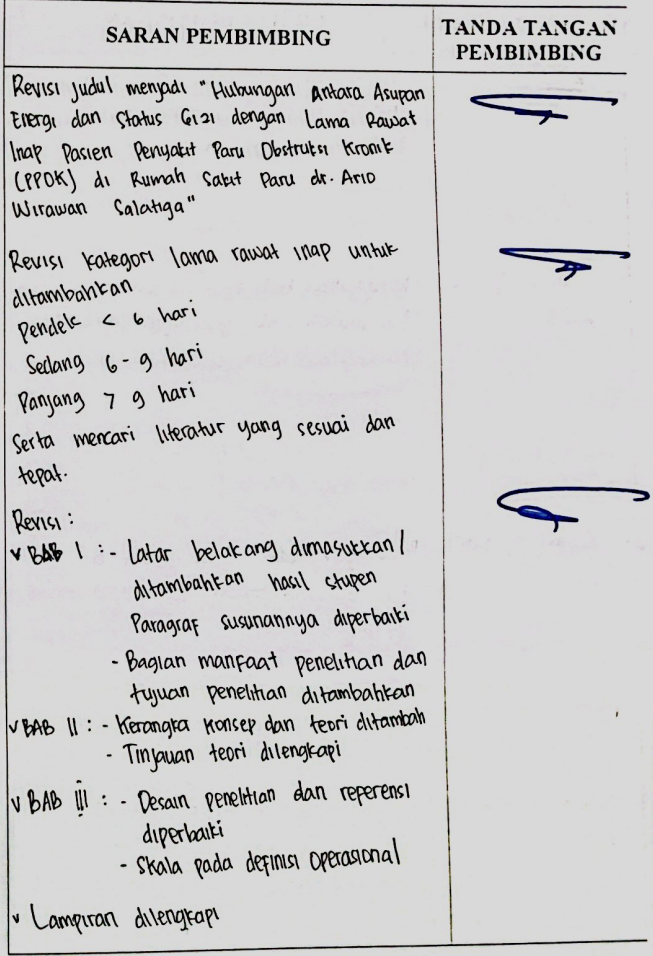 SARAN PEMBIMBING
TANDA TANGAN
PEMBIMBING
Revisi judul menjadi "Hubungan Antara Asupan
Energi dan Status Gizi dengan Lama Rawat
Inap Pasien Penyakit Paru Obstruksi Kronik
(PPOK) di Rumah Sakit Paru dr. Ario
Wirawan Salatiga"
Revisi kategori lama rawat inap untuk
ditambahkan
Pendek < 6 hari
Sedang 6 - 9 hari
Panjang > 9 hari
Serta mencari literatur yang sesuai dan
tepat.
Revisi :
v BAB I : - Latar belakang dimasukkan /
ditambahkan hasil stupen
Paragraf susunannya diperbaiki
- Bagian manfaat penelitian dan
tujuan penelitian ditambahkan
v BAB II : - Kerangka konsep dan teori ditambah
- Tinjauan teori dilengkapi
v BAB III : - Desain penelitian dan referensi
diperbaiki
- Skala pada definisi operasional
v Lampiran dilengkapi